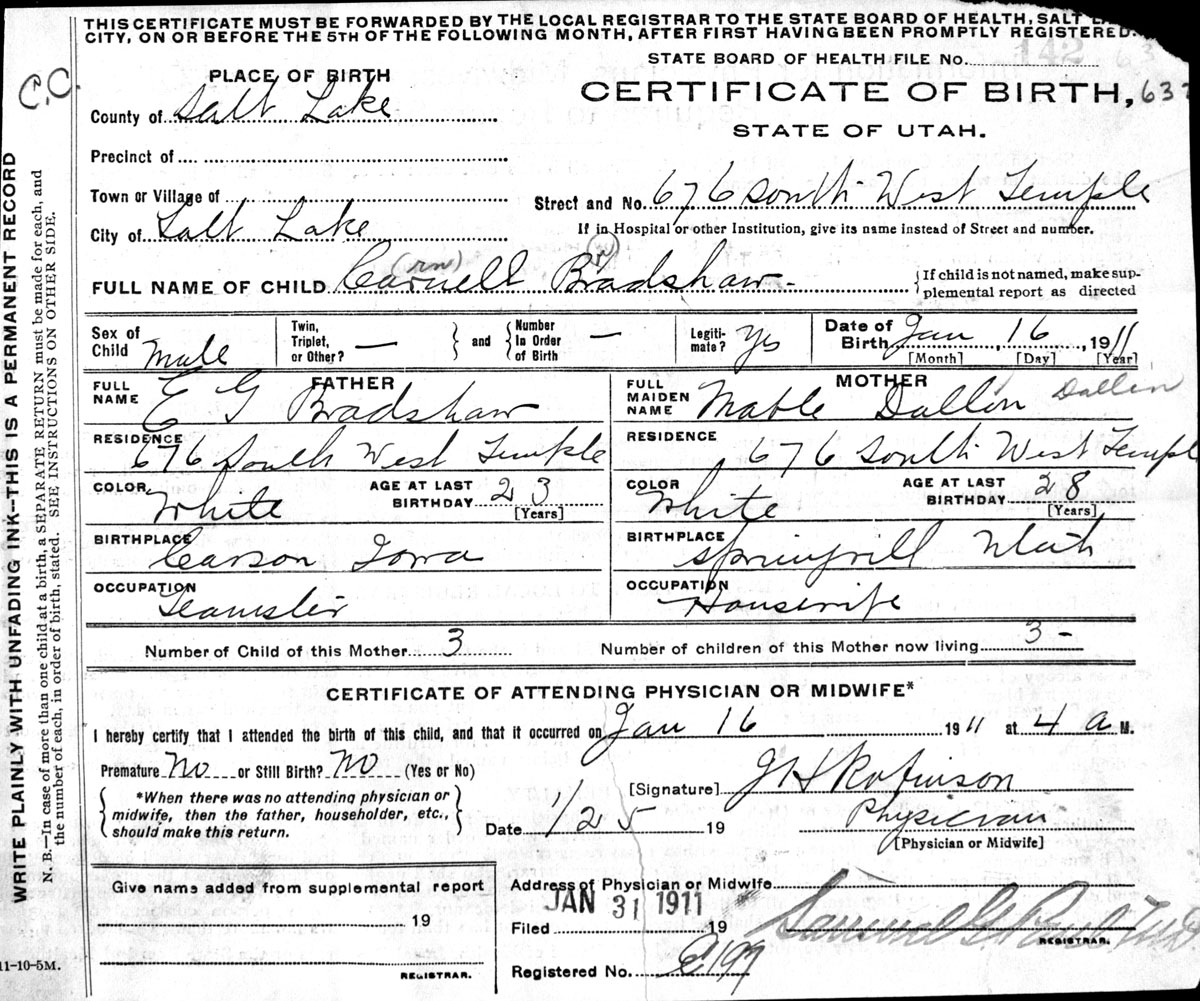 THIS CERTIFICATE MUST BE FORWARDED BY THE LOCAL REGISTRAR TO THE STATE BOARD OF HEALTH, SALT
CITY, ON OR BEFORE THE 5TH OF THE FOLLOWING MONTH, AFTER FIRST HAVING BEEN PROMPTLY REGISTERED.
C.C.
WRITE PLAINLY WITH UNFADING INK—THIS IS A PERMANENT RECORD
N. B.—In case of more than one child at a birth, a SEPARATE RETURN must be made for each, and
the number of each, in order of birth, stated. SEE INSTRUCTIONS ON OTHER SIDE.
STATE BOARD OF HEALTH FILE No. 142 63
PLACE OF BIRTH
CERTIFICATE OF BIRTH, 632
STATE OF UTAH.
County of Salt Lake
Precinct of
Town or Village of
Street and No. 676 South West Temple
City of Salt Lake
If in Hospital or other Institution, give its name instead of Street and number.
(rn) (r)
FULL NAME OF CHILD Carnell Bradshaw -
{If child is not named, make sup-
plemental report as directed
Sex of Child Male
Twin, Triplet, or Other? —
and
Number In Order of Birth —
Legiti-mate? Yes
Date of Birth Jan 16, 1911
[Month] [Day] [Year]
FATHER
FULL NAME E G Bradshaw
RESIDENCE 676 South West Temple
COLOR White
AGE AT LAST BIRTHDAY 23
[Years]
BIRTHPLACE Carson Iowa
OCCUPATION Teamster
MOTHER
FULL MAIDEN NAME Mable Dallon Dallin
RESIDENCE 676 South West Temple
COLOR White
AGE AT LAST BIRTHDAY 28
[Years]
BIRTHPLACE Springvill Utah
OCCUPATION Housewife
Number of Child of this Mother 3
Number of children of this Mother now living 3 -
CERTIFICATE OF ATTENDING PHYSICIAN OR MIDWIFE*
I hereby certify that I attended the birth of this child, and that it occurred on Jan 16 1911 at 4 a M.
Premature No or Still Birth? No (Yes or No)
*When there was no attending physician or
midwife, then the father, householder, etc.,
should make this return.
[Signature] J H Robinson
Date 1/25 19
Physician
[Physician or Midwife]
Give name added from supplemental report
19
REGISTRAR.
Address of Physician or Midwife
JAN 31 1911
Filed 19
REGISTRAR.
Registered No.
11-10-5M.